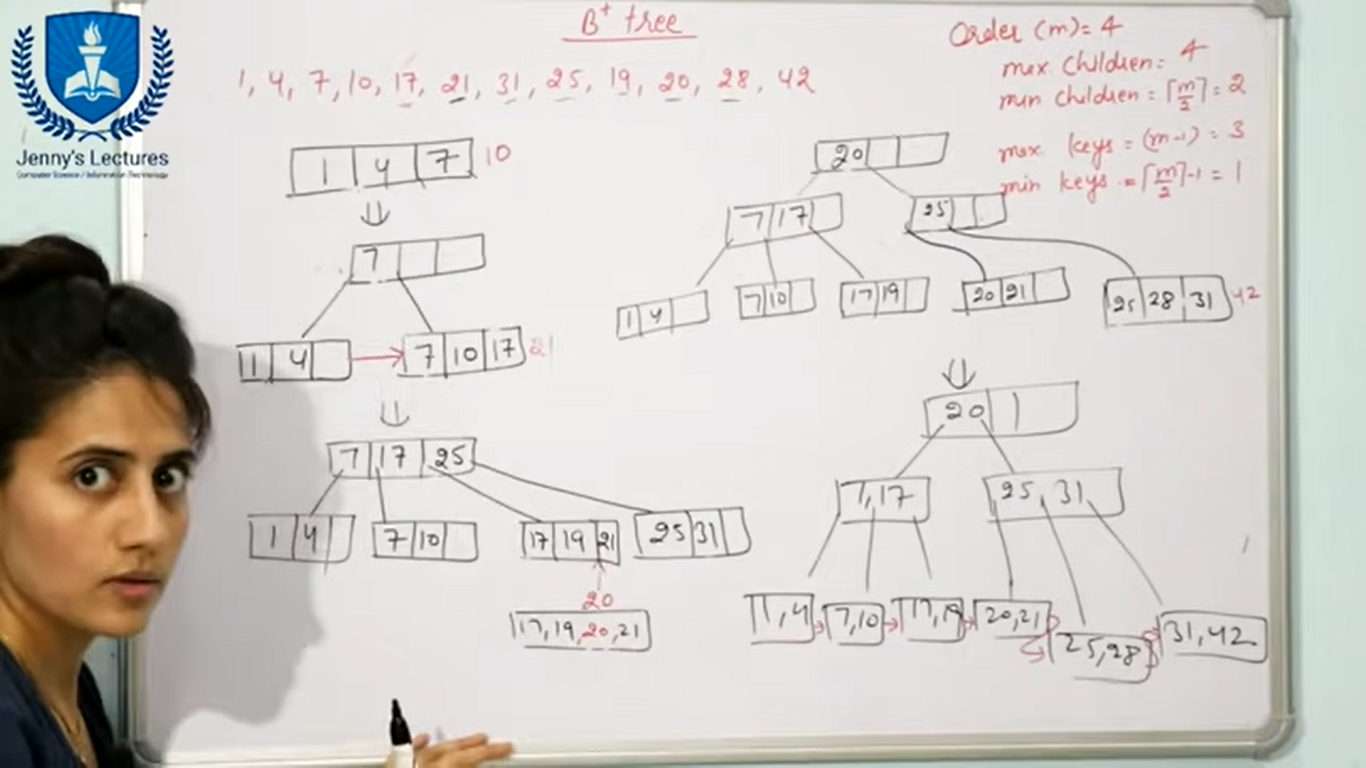 Jenny's Lectures
Computer Science / Information Technology
B+ tree
1, 4, 7, 10, 17, 21, 31, 25, 19, 20, 28, 42
Order (m) = 4
max. Children = 4
min Children = ⌈m/2⌉ = 2
max. keys = (m-1) = 3
min keys = ⌈m/2⌉-1 = 1
1 4 7 10
7
1 4 7 10 17 21
7 17 25
1 4 7 10 17 19 21 25 31
20
17, 19, 20, 21
20
7 17 25
1 4 7 10 17 19 20 21 25 28 31 42
20
7, 17 25, 31
1, 4 7, 10 17, 19 20, 21 25, 28 31, 42